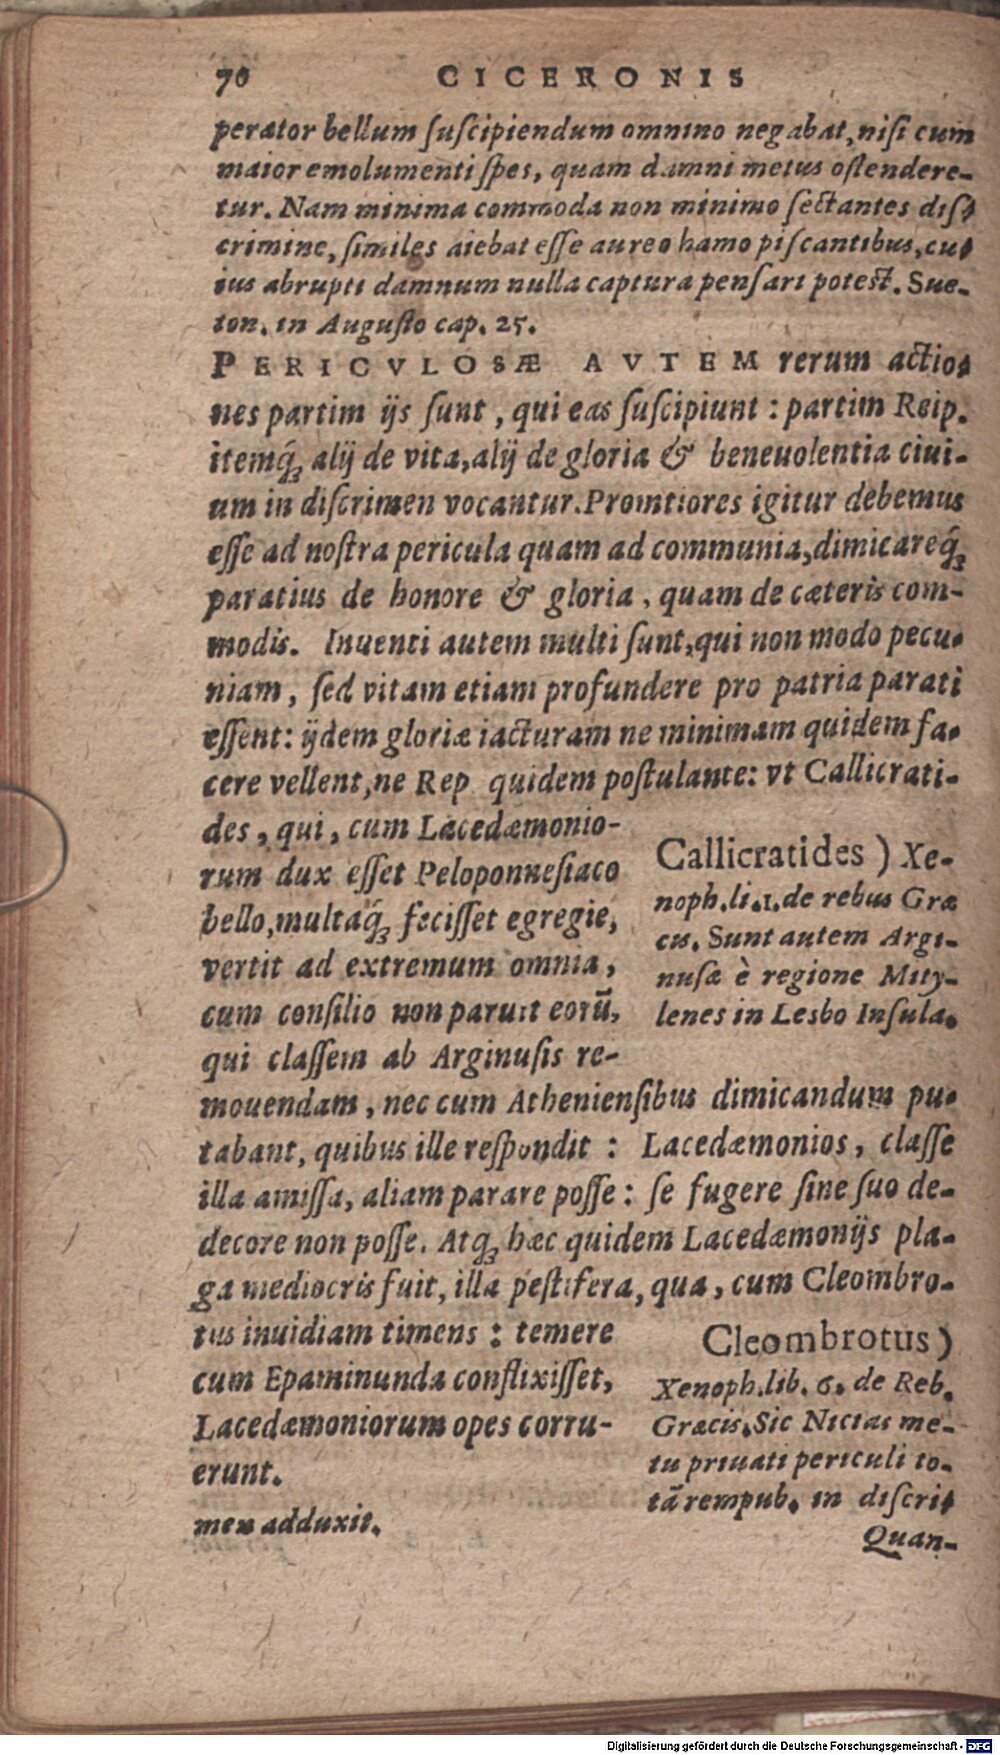 70 CICERONIS
perator bellum ſuſcipiendum omnino negabat, niſi cum
maior emolumenti ſpes, quam damni metus oſtendere-
tur. Nam minima commoda non minimo ſectantes diſ-
crimine, ſimiles aiebat eſſe aureo hamo piſcantibus, cu-
ius abrupti damnum nulla captura penſari poteſt. Sue-
ton. in Auguſto cap. 25.
PERICVLOSÆ AVTEM rerum actio-
nes partim ijs ſunt, qui eas ſuſcipiunt: partim Reip.
itemq́ꝫ alij de vita, alij de gloria & beneuolentia ciui-
um in diſcrimen vocantur. Promtiores igitur debemus
eſſe ad noſtra pericula quam ad communia, dimicareq́ꝫ
paratius de honore & gloria, quam de cæteris com-
modis. Inuenti autem multi ſunt, qui non modo pecu-
niam, ſed vitam etiam profundere pro patria parati
eſſent: ijdem gloriæ iacturam ne minimam quidem fa-
cere vellent, ne Rep quidem poſtulante: vt Callicrati-
des, qui, cum Lacedæmonio-
rum dux eſſet Peloponneſiaco
bello, multaq́ꝫ feciſſet egregie,
vertit ad extremum omnia,
cum conſilio non paruit eorũ,
qui claſſem ab Arginuſis re-
Callicratides) Xe-
noph. li. 1. de rebus Græ
cis. Sunt autem Argi-
nuſæ è regione Mity-
lenes in Lesbo Inſula.
mouendam, nec cum Athenienſibus dimicandum pu-
tabant, quibus ille reſpondit: Lacedæmonios, claſſe
illa amiſſa, aliam parare poſſe: ſe fugere ſine ſuo de-
decore non poſſe. Atqꝫ hæc quidem Lacedæmonijs pla-
ga mediocris fuit, illa peſtifera, qua, cum Cleombro-
tus inuidiam timens: temere
cum Epaminunda conflixiſſet,
Lacedæmoniorum opes corru-
erunt.
Cleombrotus)
Xenoph. lib. 6. de Reb.
Græcis. Sic Nicias me-
tu priuati periculi to-
tã rempub. in diſcri-
men adduxit.
Quan-
Digitalisierung gefördert durch die Deutsche Forschungsgemeinschaft - DFG